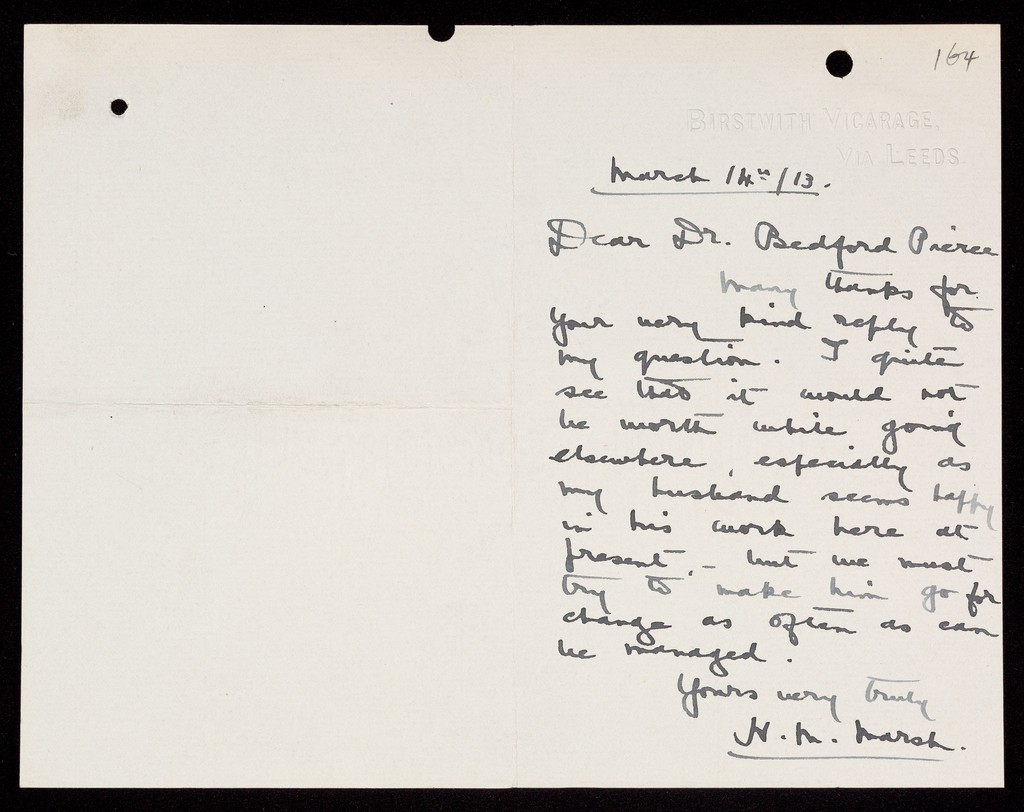 164
BIRSTWITH VICARAGE.
VIA LEEDS.
March 14th/13.
Dear Dr. Bedford Pierce
Many thanks for
your very kind reply to
my question. I quite
see that it would not
be worth while going
elsewhere, especially as
my husband seems happy
in his work here at
present, - but we must
try to make him go for
change as often as can
be managed.
Yours very truly
H. M. Marsh.